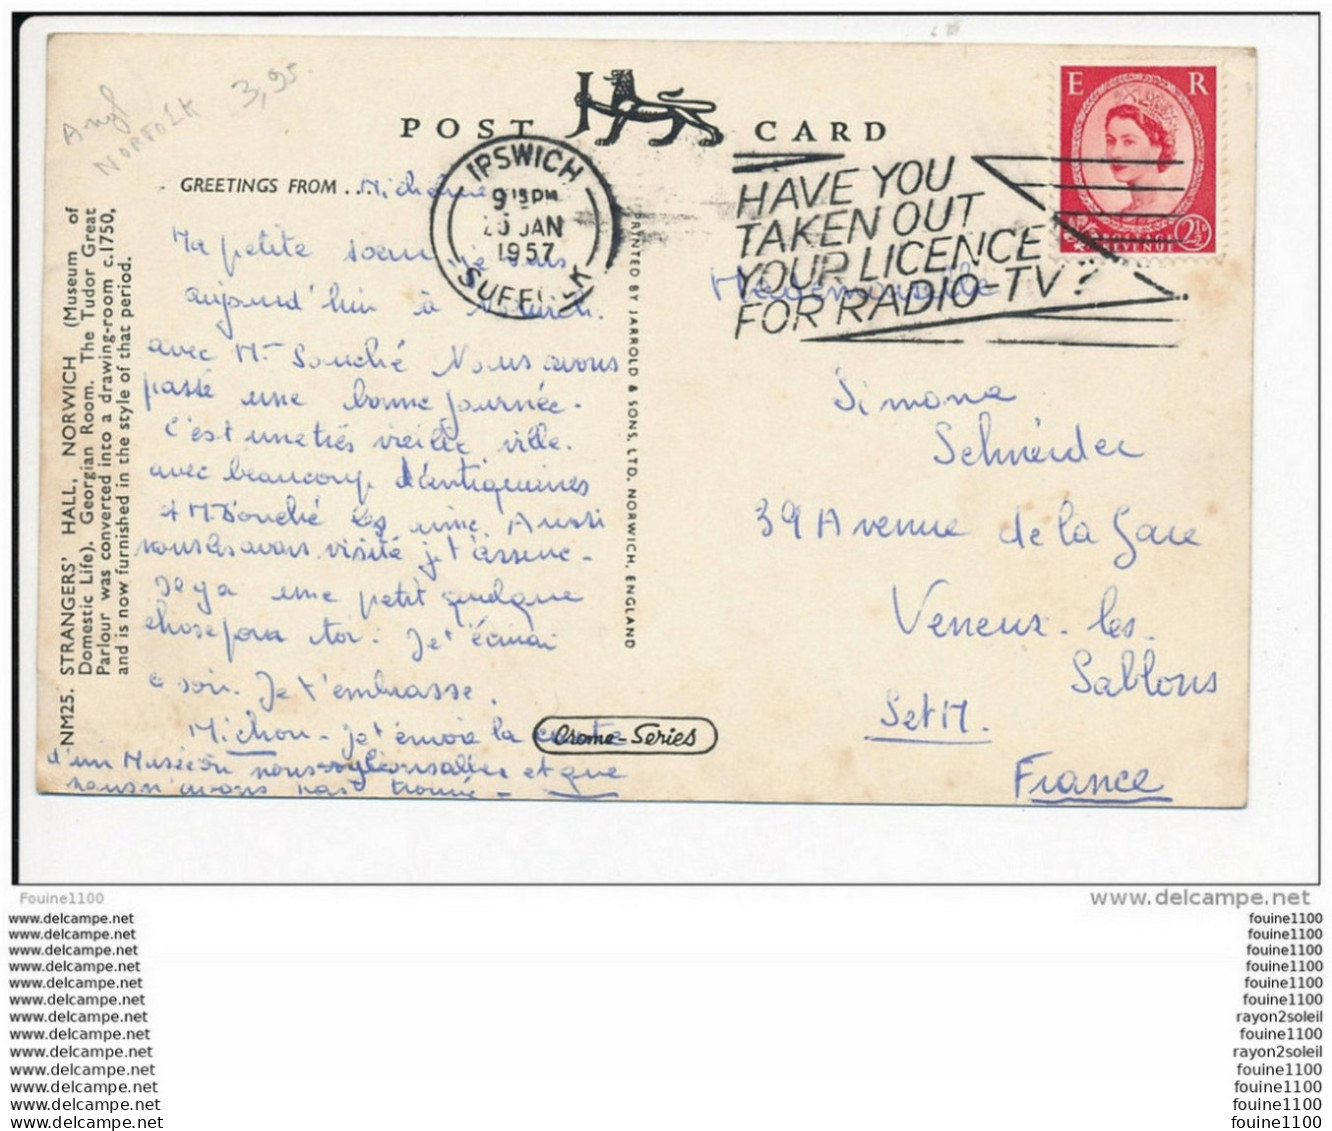 Angl
NORFOLK
3,95.
POST CARD
E R
GREETINGS FROM . . Micheline
IPSWICH
9 15 PM
JAN
1957
SUFFOLK
HAVE YOU
TAKEN OUT
YOUR LICENCE
FOR RADIO-TV?
POSTAGE
REVENUE
2½
Ma petite sœur je suis
aujourd'hui à
avec Mr Souché Nous avons
passé une bonne journée.
C'est une très vieille ville.
avec beaucoup d'antiquaires
Mr Souché
nous avons visité je t'assure.
Il y a une petit quelque
chose pour toi. Je t'écrirai
ce soir. Je t'embrasse.
Michou - Je t'envoie la carte
d'un Musée où nous allés et que
nous n'avons pas trouvé -
Mademoiselle
Simone
Schneider
39 Avenue de la Gare
Veneux-les-
Sablons
S et M.
France
Crome-Series
PRINTED BY JARROLD & SONS, LTD. NORWICH, ENGLAND
NM25. STRANGERS' HALL, NORWICH (Museum of
Domestic Life). Georgian Room. The Tudor Great
Parlour was converted into a drawing-room c.1750,
and is now furnished in the style of that period.
Fouine1100
www.delcampe.net
www.delcampe.net
www.delcampe.net
www.delcampe.net
www.delcampe.net
www.delcampe.net
www.delcampe.net
www.delcampe.net
www.delcampe.net
www.delcampe.net
www.delcampe.net
www.delcampe.net
www.delcampe.net
www.delcampe.net
fouine1100
fouine1100
fouine1100
fouine1100
fouine1100
fouine1100
rayon2soleil
fouine1100
rayon2soleil
fouine1100
fouine1100
fouine1100
fouine1100